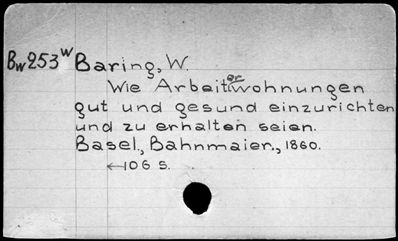 Bw253w Baring, W.
Wie Arbeiterwohnungen
gut und gesund einzurichten
und zu erhalten seien.
Basel, Bahnmaier, 1860.
←106 S.